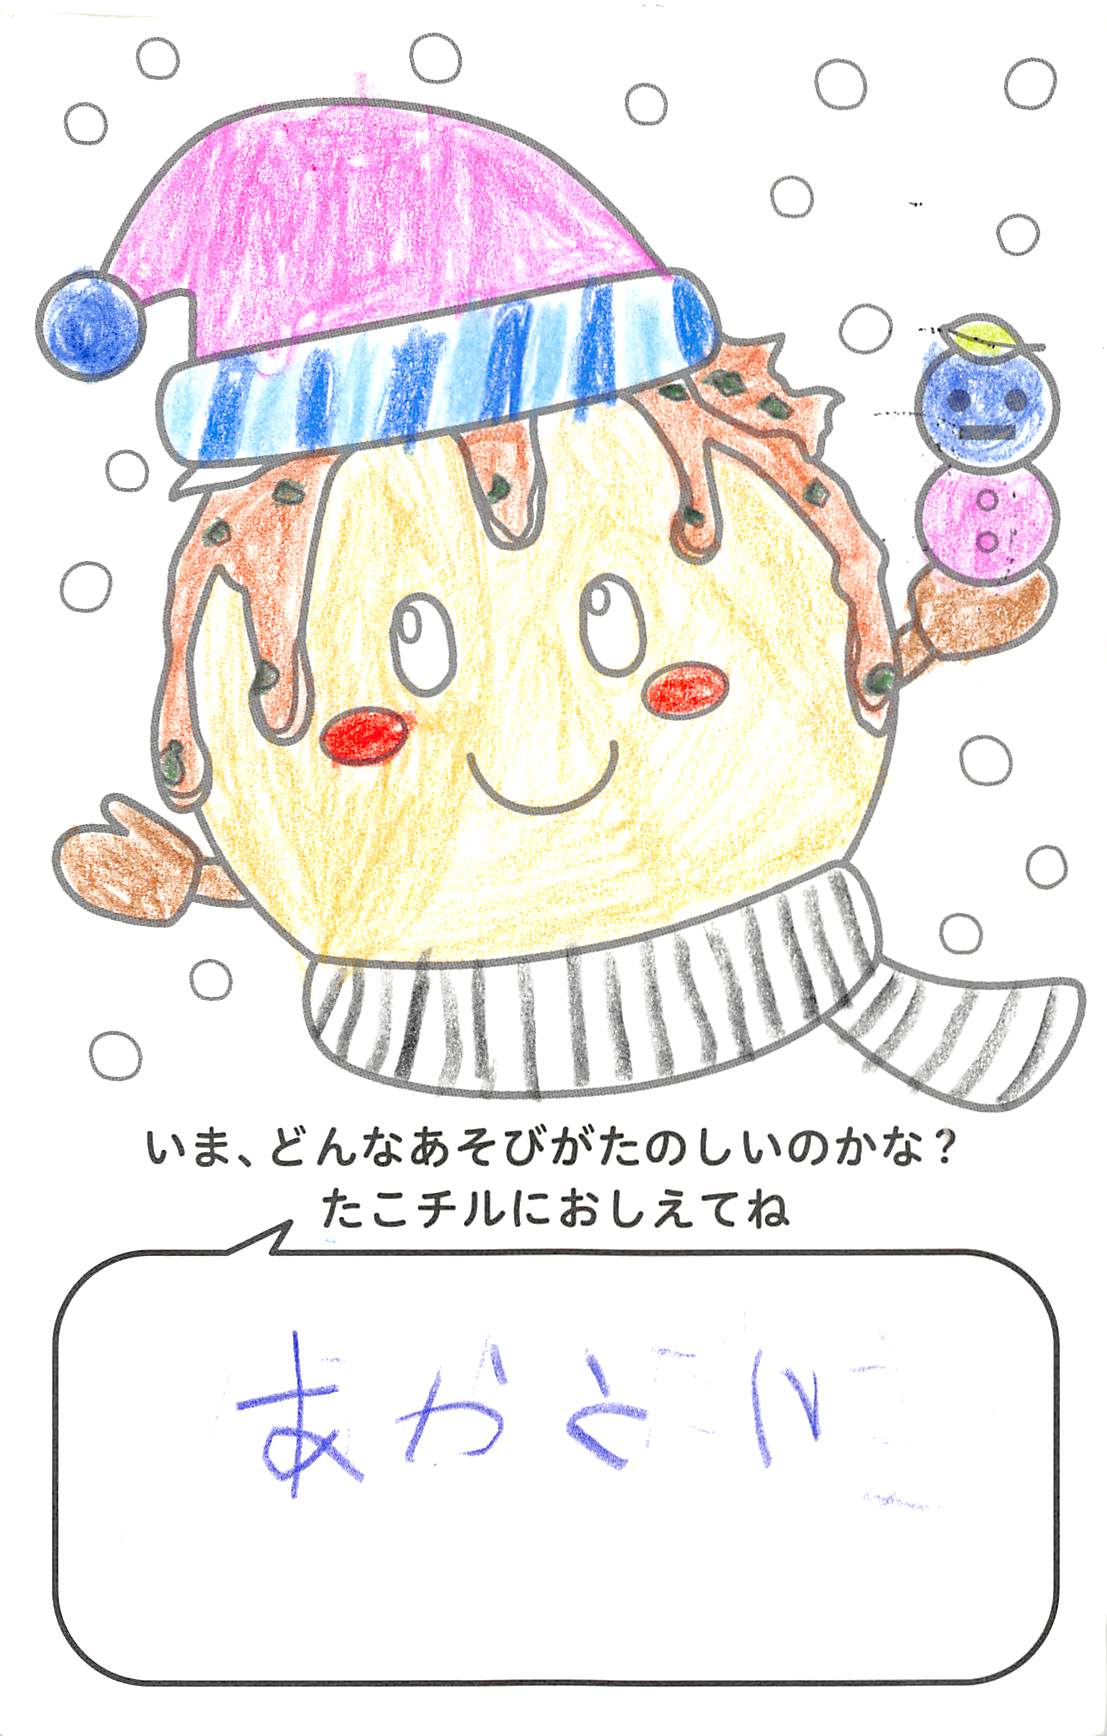 いま、どんなあそびがたのしいのかな?
たこチルにおしえてね
あやとり